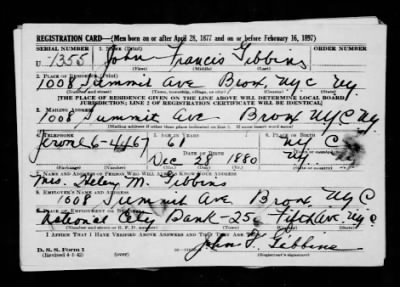 REGISTRATION CARD—(Men born on or after April 28, 1877 and on or before February 16, 1897)
SERIAL NUMBER 1. NAME (Print) ORDER NUMBER
U 1355 John Francis Gibbins
(First) (Middle) (Last)
2. PLACE OF RESIDENCE (Print)
1008 Summit Ave Bronx NYC NY
(Number and street) (Town, township, village, or city) (County) (State)
[THE PLACE OF RESIDENCE GIVEN ON THE LINE ABOVE WILL DETERMINE LOCAL BOARD
JURISDICTION; LINE 2 OF REGISTRATION CERTIFICATE WILL BE IDENTICAL]
3. MAILING ADDRESS
1008 Summit Ave Bronx NYC NY
(Mailing address if other than place indicated on line 2. If same insert word same)
4. TELEPHONE 5. AGE IN YEARS 6. PLACE OF BIRTH
Jerome 6-4467 61 NY C
DATE OF BIRTH
Dec 28 1880 NY
(Exchange) (Number) (Mo.) (Day) (Yr.) (State or country)
7. NAME AND ADDRESS OF PERSON WHO WILL ALWAYS KNOW YOUR ADDRESS
Mrs. Helen M. Gibbins
1008 Summit Ave Bronx NYC
8. EMPLOYER'S NAME AND ADDRESS
National City Bank - 25 Fifth Ave NYC
9. PLACE OF EMPLOYMENT OR BUSINESS
(Number and street or R. F. D. number) (Town) (County) (State)
I AFFIRM THAT I HAVE VERIFIED ABOVE ANSWERS AND THAT THEY ARE TRUE.
D. S. S. Form 1
(Revised 4-1-42) (over) John F. Gibbins
(Registrant's signature)